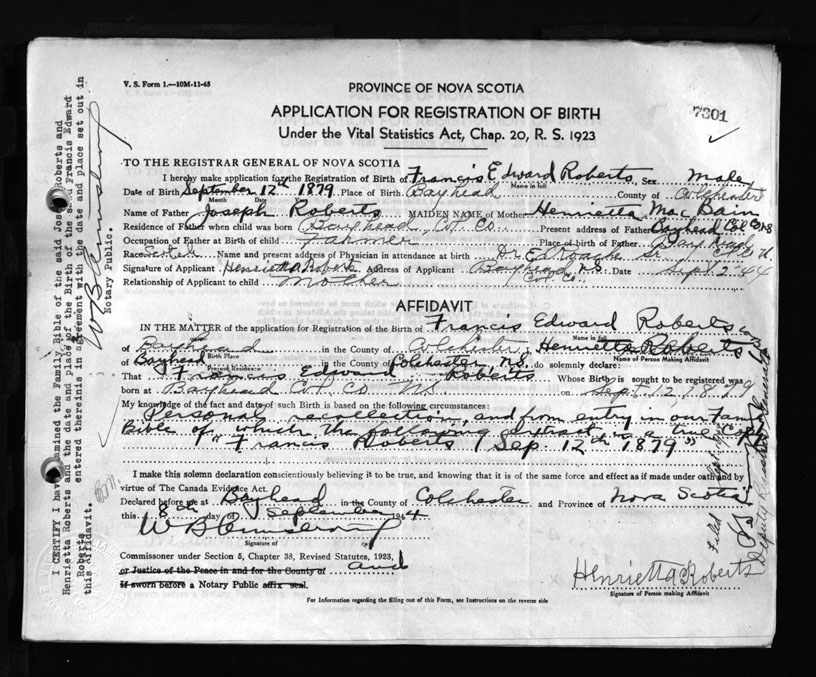 V. S. Form 1.—10M-11-43
PROVINCE OF NOVA SCOTIA
7301
APPLICATION FOR REGISTRATION OF BIRTH
Under the Vital Statistics Act, Chap. 20, R. S. 1923
TO THE REGISTRAR GENERAL OF NOVA SCOTIA
I hereby make application for the Registration of Birth of Francis Edward Roberts, Sex Male
Name in full
Date of Birth September 12th 1879. Place of Birth Bayhead County of Colchester
Month Date
Name of Father Joseph Roberts MAIDEN NAME of Mother Henrietta MacBain
Residence of Father when child was born Bayhead, Col. Co. Present address of Father Bayhead Col Co NS
Occupation of Father at Birth of child Farmer Place of birth of Father Bay Head
Race Scotch Name and present address of Physician in attendance at birth Dr. Ed Roache Sr.
Signature of Applicant Henrietta Roberts Address of Applicant Bayhead N.S. Date Sept. 2 '44
Col. Co.
Relationship of Applicant to child Mother
AFFIDAVIT
IN THE MATTER of the application for Registration of the Birth of Francis Edward Roberts
Name in full
of Bayhead in the County of Colchester, Henrietta Roberts
Birth Place
Name of Person Making Affidavit
of Bayhead in the County of Colchester, N.S. do solemnly declare:
Present Residence
That Francis Edward Roberts Whose Birth is sought to be registered was
born at Bayhead Col. Co. N.S. on Sept. 12 1879
My knowledge of the fact and date of such Birth is based on the following circumstances:
Personal recollection, and from entry in our Family
Bible of which the following extract is a true copy
"Francis Roberts / Sep. 12th 1879"
I make this solemn declaration conscientiously believing it to be true, and knowing that it is of the same force and effect as if made under oath and by
virtue of The Canada Evidence Act.
Declared before me at Bayhead in the County of Colchester and Province of Nova Scotia
this 8th day of September 1944
W B Armstrong
Signature of
Commissoner under Section 5, Chapter 38, Revised Statutes, 1923, and
or Justice of the Peace in and for the County of
If sworn before a Notary Public affix seal.
Henrietta Roberts
Signature of Person making Affidavit
For Information regarding the filling out of this Form, see Instructions on the reverse side
I CERTIFY I have examined the Family Bible of the said Joseph Roberts and
Henrietta Roberts and the date and place of the Birth of the said Francis Edward
Roberts entered therein is in agreement with the date and place set out in
this Affidavit.
W B Armstrong
Notary Public.
Filed Sept.
Deputy Registrar General